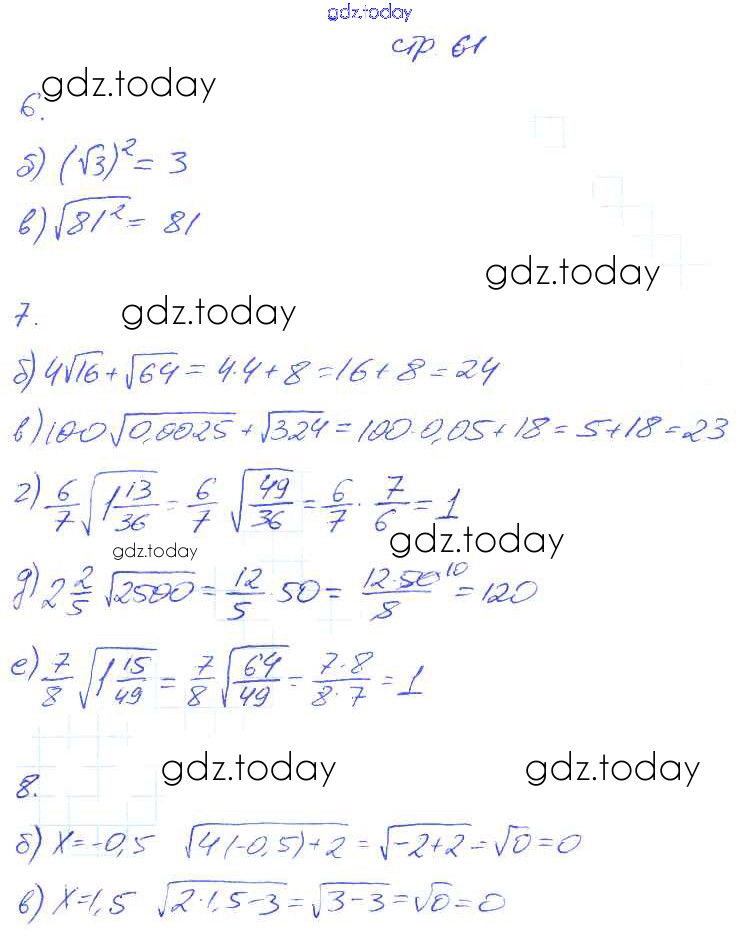 gdz.today
стр 61
gdz.today
6.
б) (√3)² = 3
в) √81² = 81
gdz.today
7.
gdz.today
б) 4√16 + √64 = 4·4 + 8 = 16 + 8 = 24
в) 100√0,0025 + √324 = 100·0,05 + 18 = 5 + 18 = 23
г) 6/7 √1 13/36 = 6/7 √49/36 = 6/7 · 7/6 = 1
gdz.today
gdz.today
д) 2 2/5 √2500 = 12/5 · 50 = 12·50 10/8 = 120
е) 7/8 √1 15/49 = 7/8 √64/49 = 7·8/8·7 = 1
gdz.today
gdz.today
8.
б) x = -0,5 √4(-0,5)+2 = √-2+2 = √0 = 0
в) x = 1,5 √2·1,5-3 = √3-3 = √0 = 0